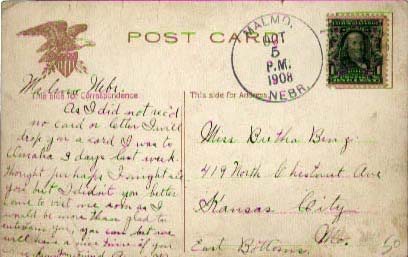 POST CARD
MALMO,
OCT
5
P.M.
1908
NEBR.
This side for Correspondence.
This side for Address
Malmo Nebr.
As I did not rec'd
no card or letter I will
drop you a card I was to
Omaha 3 days last week.
thought perhaps I might see
you but I didn't you better
come to visit me soon as I
would be more than glad to
entertain you, you can bet we
will have a nice time if you
Miss Bertha
419 North Chestnut Ave
Kansas City
Mo.
East Bottoms.
50